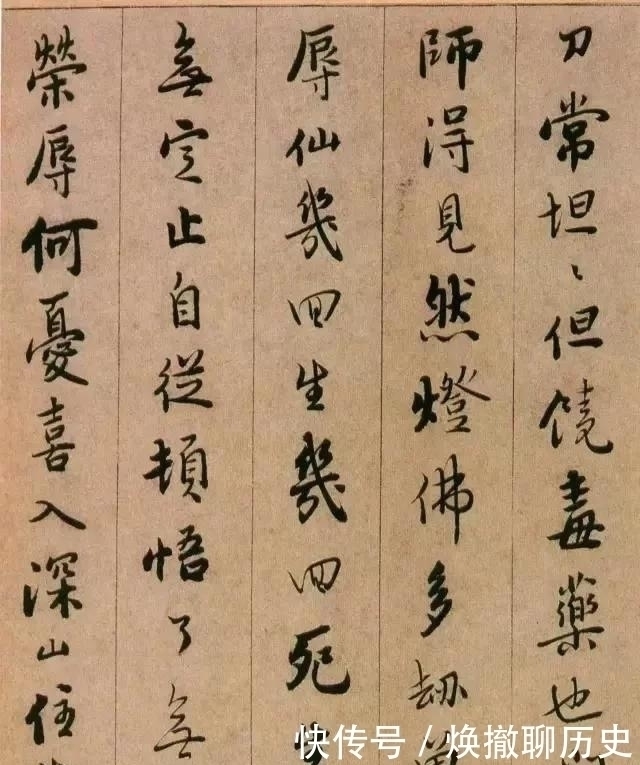 刀常坦〻但饒毒藥也
師得見然燈佛多劫
辱仙幾回生幾回死
無定止自從頓悟了無
榮辱何憂喜入深山住
快传号 / 焕撤聊历史